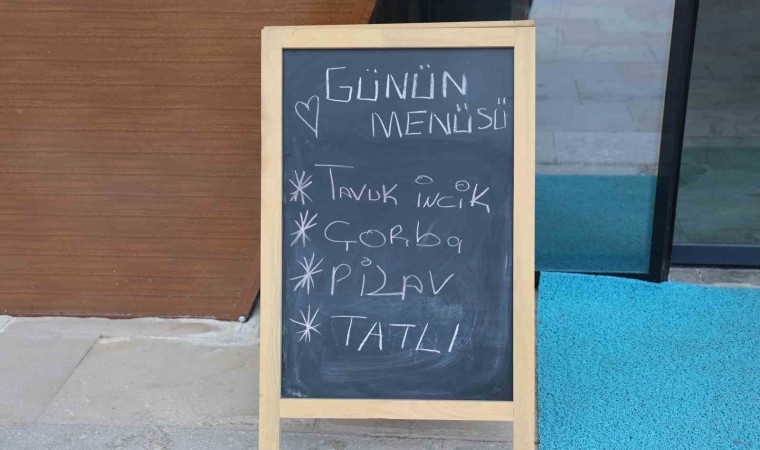 GÜNÜN
MENÜSÜ
TAVUK İNCİK
ÇORba
PİLAV
TATLI